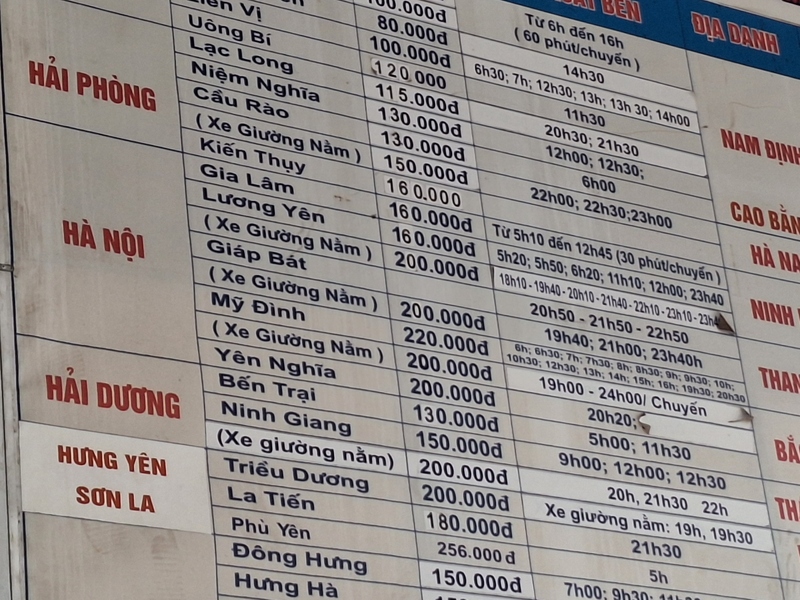 100.000đ
ĐỊA DANH
80.000đ
Từ 6h đến 16h
( 60 phút/chuyến )
Uông Bí
100.000đ
14h30
Lạc Long
120.000
6h30; 7h; 12h30; 13h; 13h 30; 14h00
HẢI PHÒNG
Niệm Nghĩa
115.000đ
11h30
Cầu Rào
130.000đ
20h30; 21h30
( Xe Giường Nằm )
130.000đ
12h00; 12h30;
Kiến Thụy
150.000đ
6h00
Gia Lâm
160.000
22h00; 22h30;23h00
Lương Yên
160.000đ
Từ 5h10 đến 12h45 (30 phút/chuyến )
HÀ NỘI
( Xe Giường Nằm )
160.000đ
5h20; 5h50; 6h20; 11h10; 12h00; 23h40
Giáp Bát
200.000đ
18h10 - 19h40 - 20h10 - 21h40 - 22h10 - 23h10 -
( Xe Giường Nằm )
20h50 - 21h50 - 22h50
Mỹ Đình
200.000đ
19h40; 21h00; 23h40h
( Xe Giường Nằm )
220.000đ
6h; 6h30; 7h; 7h30; 8h; 8h30; 9h; 9h30; 10h;
10h30; 12h30; 13h; 14h; 15h; 16h; 19h30; 20h30
Yên Nghĩa
200.000đ
19h00 - 24h00/ Chuyến
HẢI DƯƠNG
Bến Trại
200.000đ
20h20;
Ninh Giang
130.000đ
5h00; 11h30
(Xe giường nằm)
150.000đ
9h00; 12h00; 12h30
HƯNG YÊN
Triều Dương
200.000đ
20h, 21h30 22h
SƠN LA
La Tiến
200.000đ
Xe giường nằm: 19h, 19h30
Phù Yên
180.000đ
21h30
Đông Hưng
256.000đ
5h
Hưng Hà
150.000đ
NAM ĐỊNH
CAO BẰN
HÀ NA
NINH
THAN